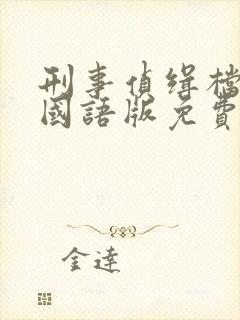 刑事偵缉檔
國語版免費
金達